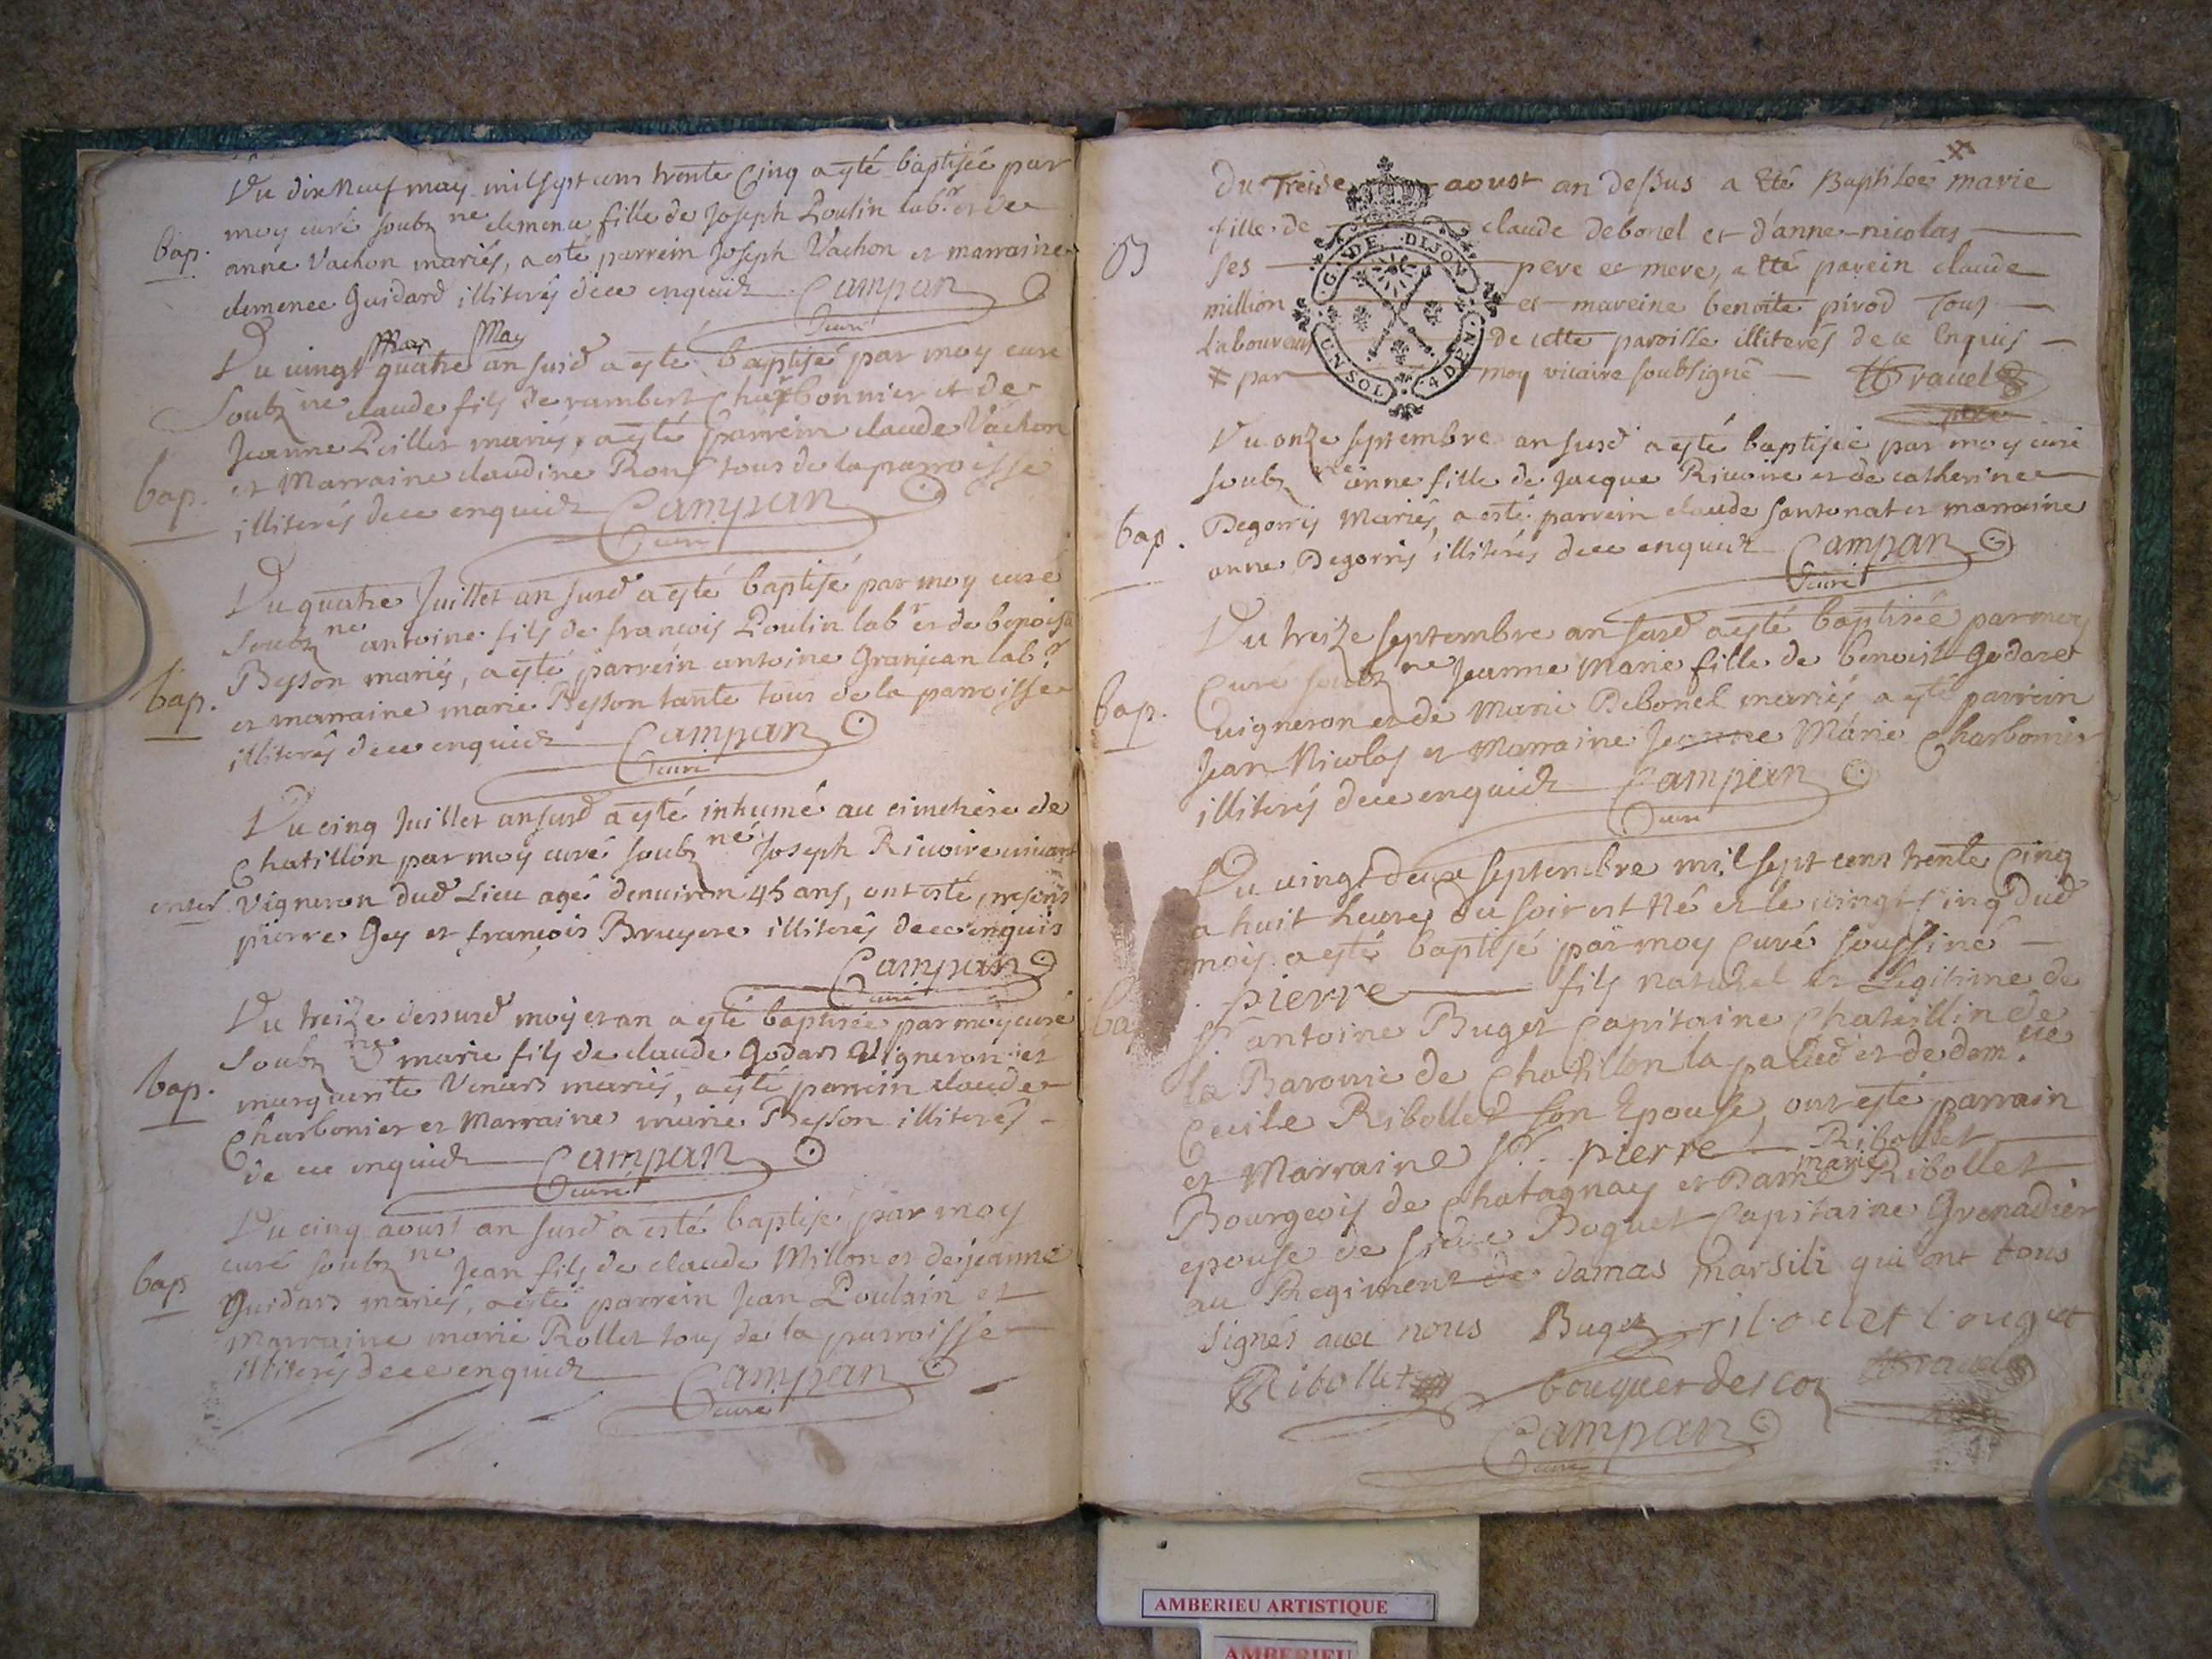 Du dix Neuf may mil sept cens trente Cinq a esté baptisée par
moy curé soubz.né clemence fille de Joseph Poulin lab.r et de
bap. anne Vachon mariés, a esté parrein Joseph Vachon et marraine
clemence Guidard illiterés de ce enquids Campan
curé
May
Du vingt quatre an susd a esté baptisé par moy curé
soubz.né claude fils de rambert Charbonnier et de
Jeanne mariés, a esté parrein claude Vachon
bap. et Marraine claudine tous de la parroisse
illiterés de ce enquids Campan
curé
Du quatre Juillet an susd a esté baptisé par moy curé
soubz.né antoine fils de francois Poulin lab.r et de benoist
bap. Besson mariés, a esté parrein antoine Granjean lab.r
et marraine marie Besson tante tous de la parroisse
illiterés de ce enquids Campan
curé
Du cinq Juillet an susd a esté inhumé au cimetière de
Chatillon par moy curé soubz.né Joseph Rivoire vivant
enter Vigneron dud Lieu agé denviron 45 ans, ont esté presens
pierre Gey et françois Bruyere illiterés de ce enquis
Campan
curé
Du treize dessusd moy et an a esté baptisée par moy curé
soubz.né marie fils de claude Godard Vigneron et
bap. marguerite Venard mariés, a esté parrein claude
Charbonier et Marraine marie Besson illiterés
de ce enquids Campan
curé
Du cinq aoust an susd a esté baptisé par moy
curé soubz.né Jean fils de claude Millon et de jeanne
bap Guidard mariés, a esté parrein Jean Poulain et
Marraine marie Rollet tous de la parroisse
illiterés de ce enquids Campan
curé
Du Treise aoust an dessus a Eté Baptisée ⌗ marie
fille de claude debonel et d'anne nicolas
B ses pere et mere, a Eté parein claude
million et mareine benoite pirod Tous
Laboureurs de cette paroisse illiterés de ce Enquis
⌗ par moy vicaire soubsigné Gravel
G. DE. DIJON
UN SOL 4 DEN
Du onze septembre an susd a esté baptisée par moy curé
soubz.né anne fille de Jacque Rivoire et de catherine
bap. Degorris Mariés, a esté parrein claude santonat et marraine
anne Degorris illiterés de ce enquids Campan
curé
Du treize septembre an susd a esté baptisée par moy
Curé soubz.né Jeanne Marie fille de benoist Godaret
bap. vigneron et de Marie Debonel mariés a esté parrein
Jean Nicolas et Marraine Jeanne Marie Charbonier
illiterés de ce enquids Campan
curé
Du vingt deux septembre mil sept cens trente Cinq
a huit heures du soir est Né et le vingt Cinq dud
mois a esté baptisé par moy Curé soussiné
ba pierre fils naturel et Legitime de
S.r antoine Buget Capitaine Chatellin de
la Baronie de Chatillon la palud et de dem.lle
Cecile Ribollet son Epouse, ont esté parrain
et Marraine S.r pierre Ribollet
Bourgeois de Chatagnay et Dame marie Ribollet
epouse de Boguet Capitaine Grenadier
au Regiment de damas Marsili qui ont tous
signés avec nous Buget
Ribollet Gravel
Campan
curé
AMBERIEU ARTISTIQUE
AMBERIEU